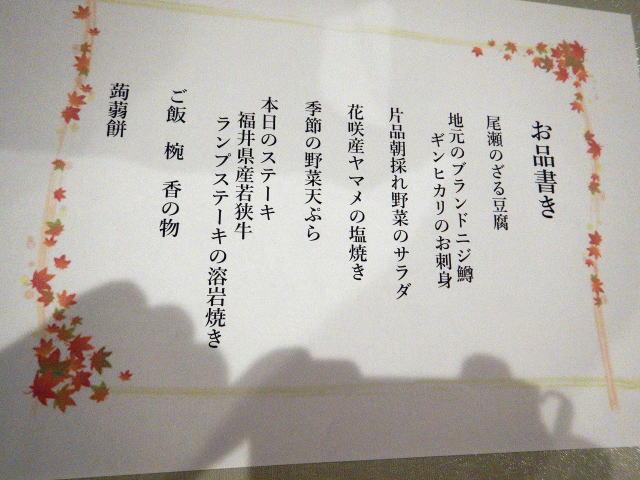 お品書き
尾瀬のざる豆腐
地元のブランドニジ鱒
ギンヒカリのお刺身
片品朝採れ野菜のサラダ
花咲産ヤマメの塩焼き
季節の野菜天ぷら
本日のステーキ
福井県産若狭牛
ランプステーキの溶岩焼き
ご飯 椀 香の物
蒟蒻餅